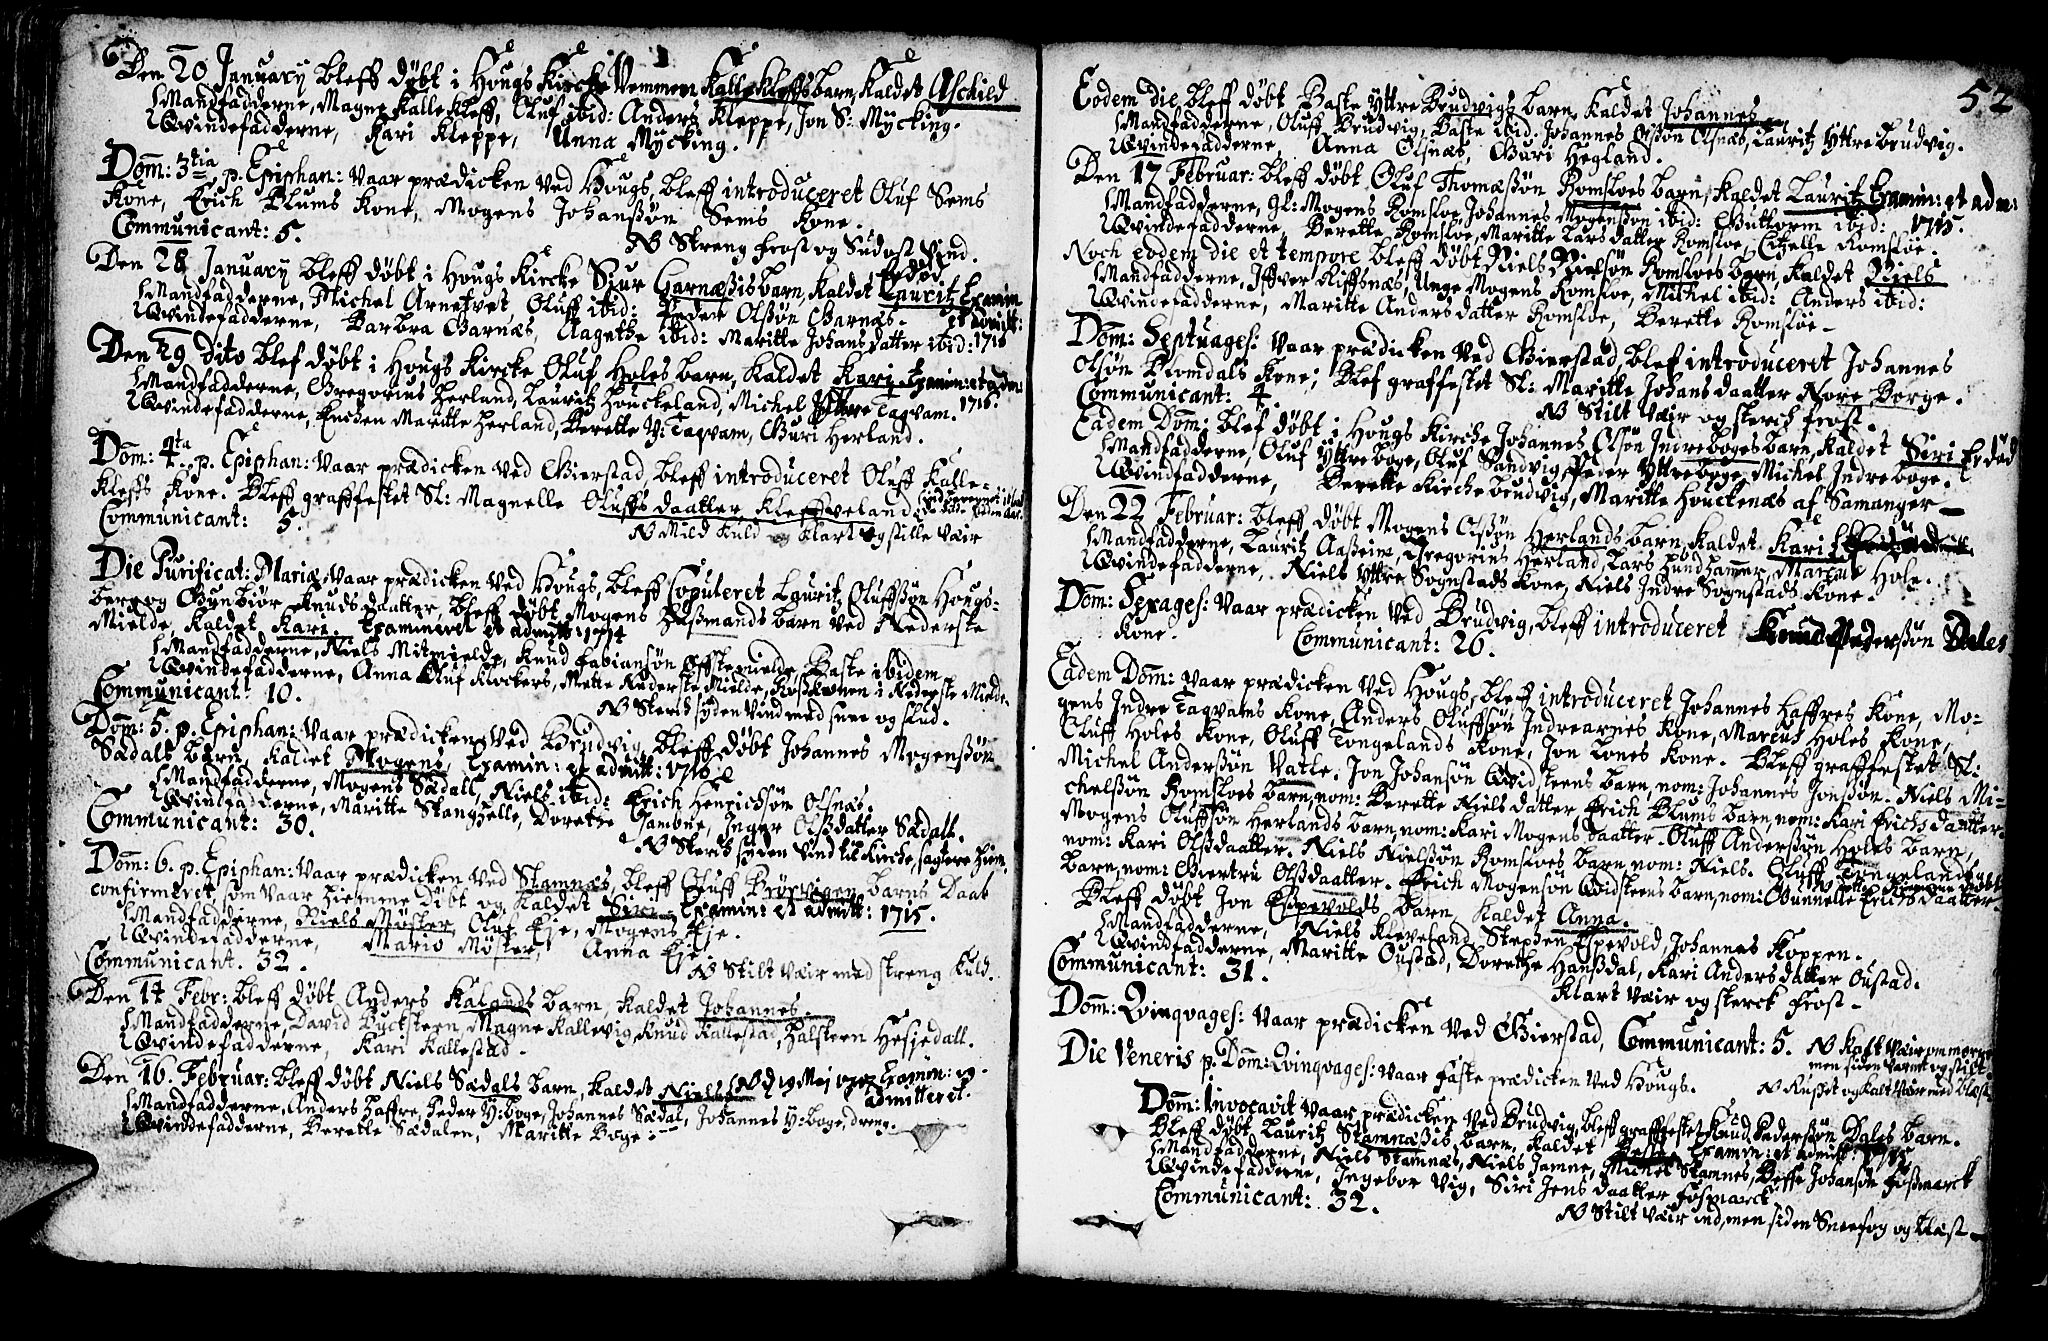 Den 20 January bleff døbt i Hougs Kircke Vemmen Kallekleffs barn, Kaldet Aschild
Mandfadderne, Magne Kallekleff, Oluf ibid: Anders Kleppe, Jon S: Mÿcking.
Qvindefadderne, Kari Kleppe, Anna Mÿcking.
Dom: 3tia, p. Epiphan: Vaar prædicken Ved Hougs, bleff introduceret Oluf Sems
Kone, Erich Blums Kone, Mogens Johanßøn Sems Kone.
Communicant: 5.
NB Streng frost og Sudost Vind.
Den 28 January bleff døbt i Hougs Kircke Siur Garnæßis barn, Kaldet Lauritz Examin
Mandfadderne, Michel Arnetvet, Oluff ibid: Peder Olßøn Garnæs. et admit:
Qvindefadderne, Barbra Garnæs, Aagethe ibid: Maritte Johans datter ibid: 1716
Den 29 dito blef døbt i Hougs Kircke Oluf Holes barn, Kaldet Kari Examin: et adm:
Mandfadderne, Gregorius Herland, Lauritz Houckeland, Michel Yttre Tagvam. 1716.
Qvindefadderne, Enchen Maritte Herland, Berette Y: Tagvam, Guri Herland.
Dom: 4ta p. Epiphan: Vaar prædicken Ved Gierstad, bleff introduceret Oluff Kalle-
kleffs Kone. Bleff graffestet Sl: Magnelle Oluffs daatter Kleffveland
Communicant: 5.
NB Mild Kuld og Klart og stille Vær
Die Purificat: Mariæ, Vaar prædicken Ved Hougs, bleff Copuleret Lauritz Oluffsøn Hougs-
berg og Gunbiør Knuds daatter, bleff døbt Mogens Hußmands barn Ved Nederste
Mielde, Kaldet Kari. Examineret et admitt 1714
Mandfadderne, Niels Mitmielde, Knud Fabiansøn Øffstemielde, Baste ibidem
Qvindefadderne, Anna Oluf Klockers, Mette Nederste Mielde, Huß Konen i Nederste Mielde.
Communicant: 10.
NB Sterck syden Vind med snee og slud.
Dom: 5. p. Epiphan: Vaar prædicken Ved Brudvig, bleff døbt Johannes Mogensßøn
Sædals barn, Kaldet Mogens, Examin: et admitt: 1716
Mandfadderne, Mogens Sædall, Niels ibid: Erich Henrichsøn Olsnæs.
Qvindfadderne, Maritte Stanghelle, Dorethe Jamne, Inger Olßdatter Sædall.
Communicant: 30.
NB Sterck syden Vind til Kircke, sagtere hiem.
Dom: 6. p. Epiphan: Vaar prædicken Ved Stamnæs, bleff Oluff Børvigen barns Daab
confirmeret, som Vaar hiemme døbt og Kaldet Siri Examin: et admitt: 1715.
Mandfadderne, Niels Møster, Oluf Eje, Mogens Eje.
Qvindefadderne, Mario Møster, Anna Eje
Communicant. 32.
NB Stilt Vær med streng Kuld.
Den 14 Febr: bleff døbt Anders Kalands barn, Kaldet Johannes.
Mandfadderne, David Byckstern, Magne Kallevig, Knud Kallestad, Halsteen Hesjedall.
Qvindefadderne, Kari Kallestad.
Den 16. Februar: bleff døbt Niels Sædals barn, Kaldet Niels
Mandfadderne, Anders Haffre, Peder Y: boge, Johannes Sædal, Johannes Y: boge, dreng. admitteret.
Qvindefadderne, Berette Sædalen, Maritte Boge:
52
Eodem die bleff døbt Baste Yttre Brudvigs barn, Kaldet Johannes
Mandfadderne, Oluff Brudvig, Baste ibid. Johannes Olsøn Olsnæs, Lauritz Yttre Brudvig.
Qvindefadderne, Anna Olsnæs, Guri Hegland.
Den 17 Februar: bleff døbt Oluf Thomæsøn Romsloes barn, Kaldet Lauritz Examin: et adm:
Mandfadderne, gl: Mogens Romsloe, Johannes Mogensßøn ibid: Guttorm ibid: 1715.
Qvindefadderne, Berette Romsloe, Maritte Lars datter Romsloe, Citzelle Romsløe.
Noch eodem die et tempore bleff døbt Niels Nielsøn Romsloes barn, Kaldet Niels
Mandfadderne, Iffver Riffsnæs, Unge Mogens Romsloe, Michel ibid: Anders ibid:
Qvindefadderne, Maritte Anders datter Romsloe, Berette Romsløe.
Dom: Septuages: Vaar prædicken Ved Gierstad, blef introduceret Johannes
Olsøn Blomdals Kone; Blef graffestet Sl: Maritte Johans daatter Nore Borge.
Communicant: 4.
NB Stilt Vær og sterck frost.
Eadem Dom: blef døbt i Hougs Kircke Johannes Olsøn Indreboges barn, Kaldet Siri
Mandfadderne, Oluf Yttreboge, Oluf Sandvig, Peder Yttreboge, Michel Indreboge.
Qvindfadderne, Berette Kirchebrudvig, Maritte Houckenæs af Samanger
Den 22 Februar: bleff døbt Mogens Olsßøn Herlands barn, Kaldet Kari
Mandfadderne, Lauritz Aaßeim, Gregorius Herland, Lars Hundhammer, Marcus Hole.
Qvindefadderne, Niels Yttre Sognstads Kone, Niels Indre Sognstads Kone.
Dom: Sexages: Vaar prædicken Ved Brudvig, bleff introduceret Knud Pederßøn Dales
Kone. Communicant: 26.
Eadem Dom: Vaar prædicken Ved Hougs, bleff introduceret Johannes Haffres Kone, Mo-
gens Indre Tagvams Kone, Anders Oluffsøn Indrearnes Kone, Marcus Holes Kone,
Oluff Holes Kone, Oluff Tongelands Kone, Jon Lones Kone. Bleff graffestet Sl:
Michel Anderßøn Vatle. Jon Johansøn Qvidsteens barn, nom: Johannes Jonsßøn. Niels Mi-
chelsßøn Romsloes barn, nom: Berette Niels datter, Erich Blums barn, nom: Kari Erichs daatter.
Mogens Oluffsøn Herlands barn, nom: Kari Mogens daatter. Oluff Anderssøn Holes barn,
nom: Kari Olßdaatter. Niels Nielsßøn Romsloes barn, nom: Niels. Oluff Tongelands
barn, nom: Giertru Olßdaatter. Erich Mogensøn Qvidsteens barn, nom: Gunnelle Erichs daatter.
Bleff døbt Jon Espevolds barn, Kaldet Anna.
Mandfadderne, Niels Kleveland, Stephen Espevold, Johannes Koppen.
Qvindfadderne, Maritte Oustad, Dorethe Hanßdal, Kari Anders datter Oustad.
Communicant: 31.
Klart Vær og sterck frost.
Dom: Qvinqvages: Vaar prædicken Ved Gierstad, Communicant: 5. NB Kalt Vær om morgen
men siden Varmt og stilt.
Die Veneris p. Dom: Qvinqvages: Vaar faste prædicken Ved Hougs. NB Rusket og Kalt Vær med blæst
Dom: Invocavit Vaar prædicken Ved Brudvig, bleff graffestet Knud Pedersßøn Dales barn.
Bleff døbt Lauritz Stamnæßis barn, Kaldet Examin: et admitt
Mandfadderne, Niels Stamnæs, Niels Jamne, Michel Stamnes, Deffe Johansøn Foßmarck
Qvindefadderne, Ingebor Vig, Siri Jens daatter Fosmarck
Communicant: 32.
NB Stilt Vær ind, men siden Sneefog og blæst